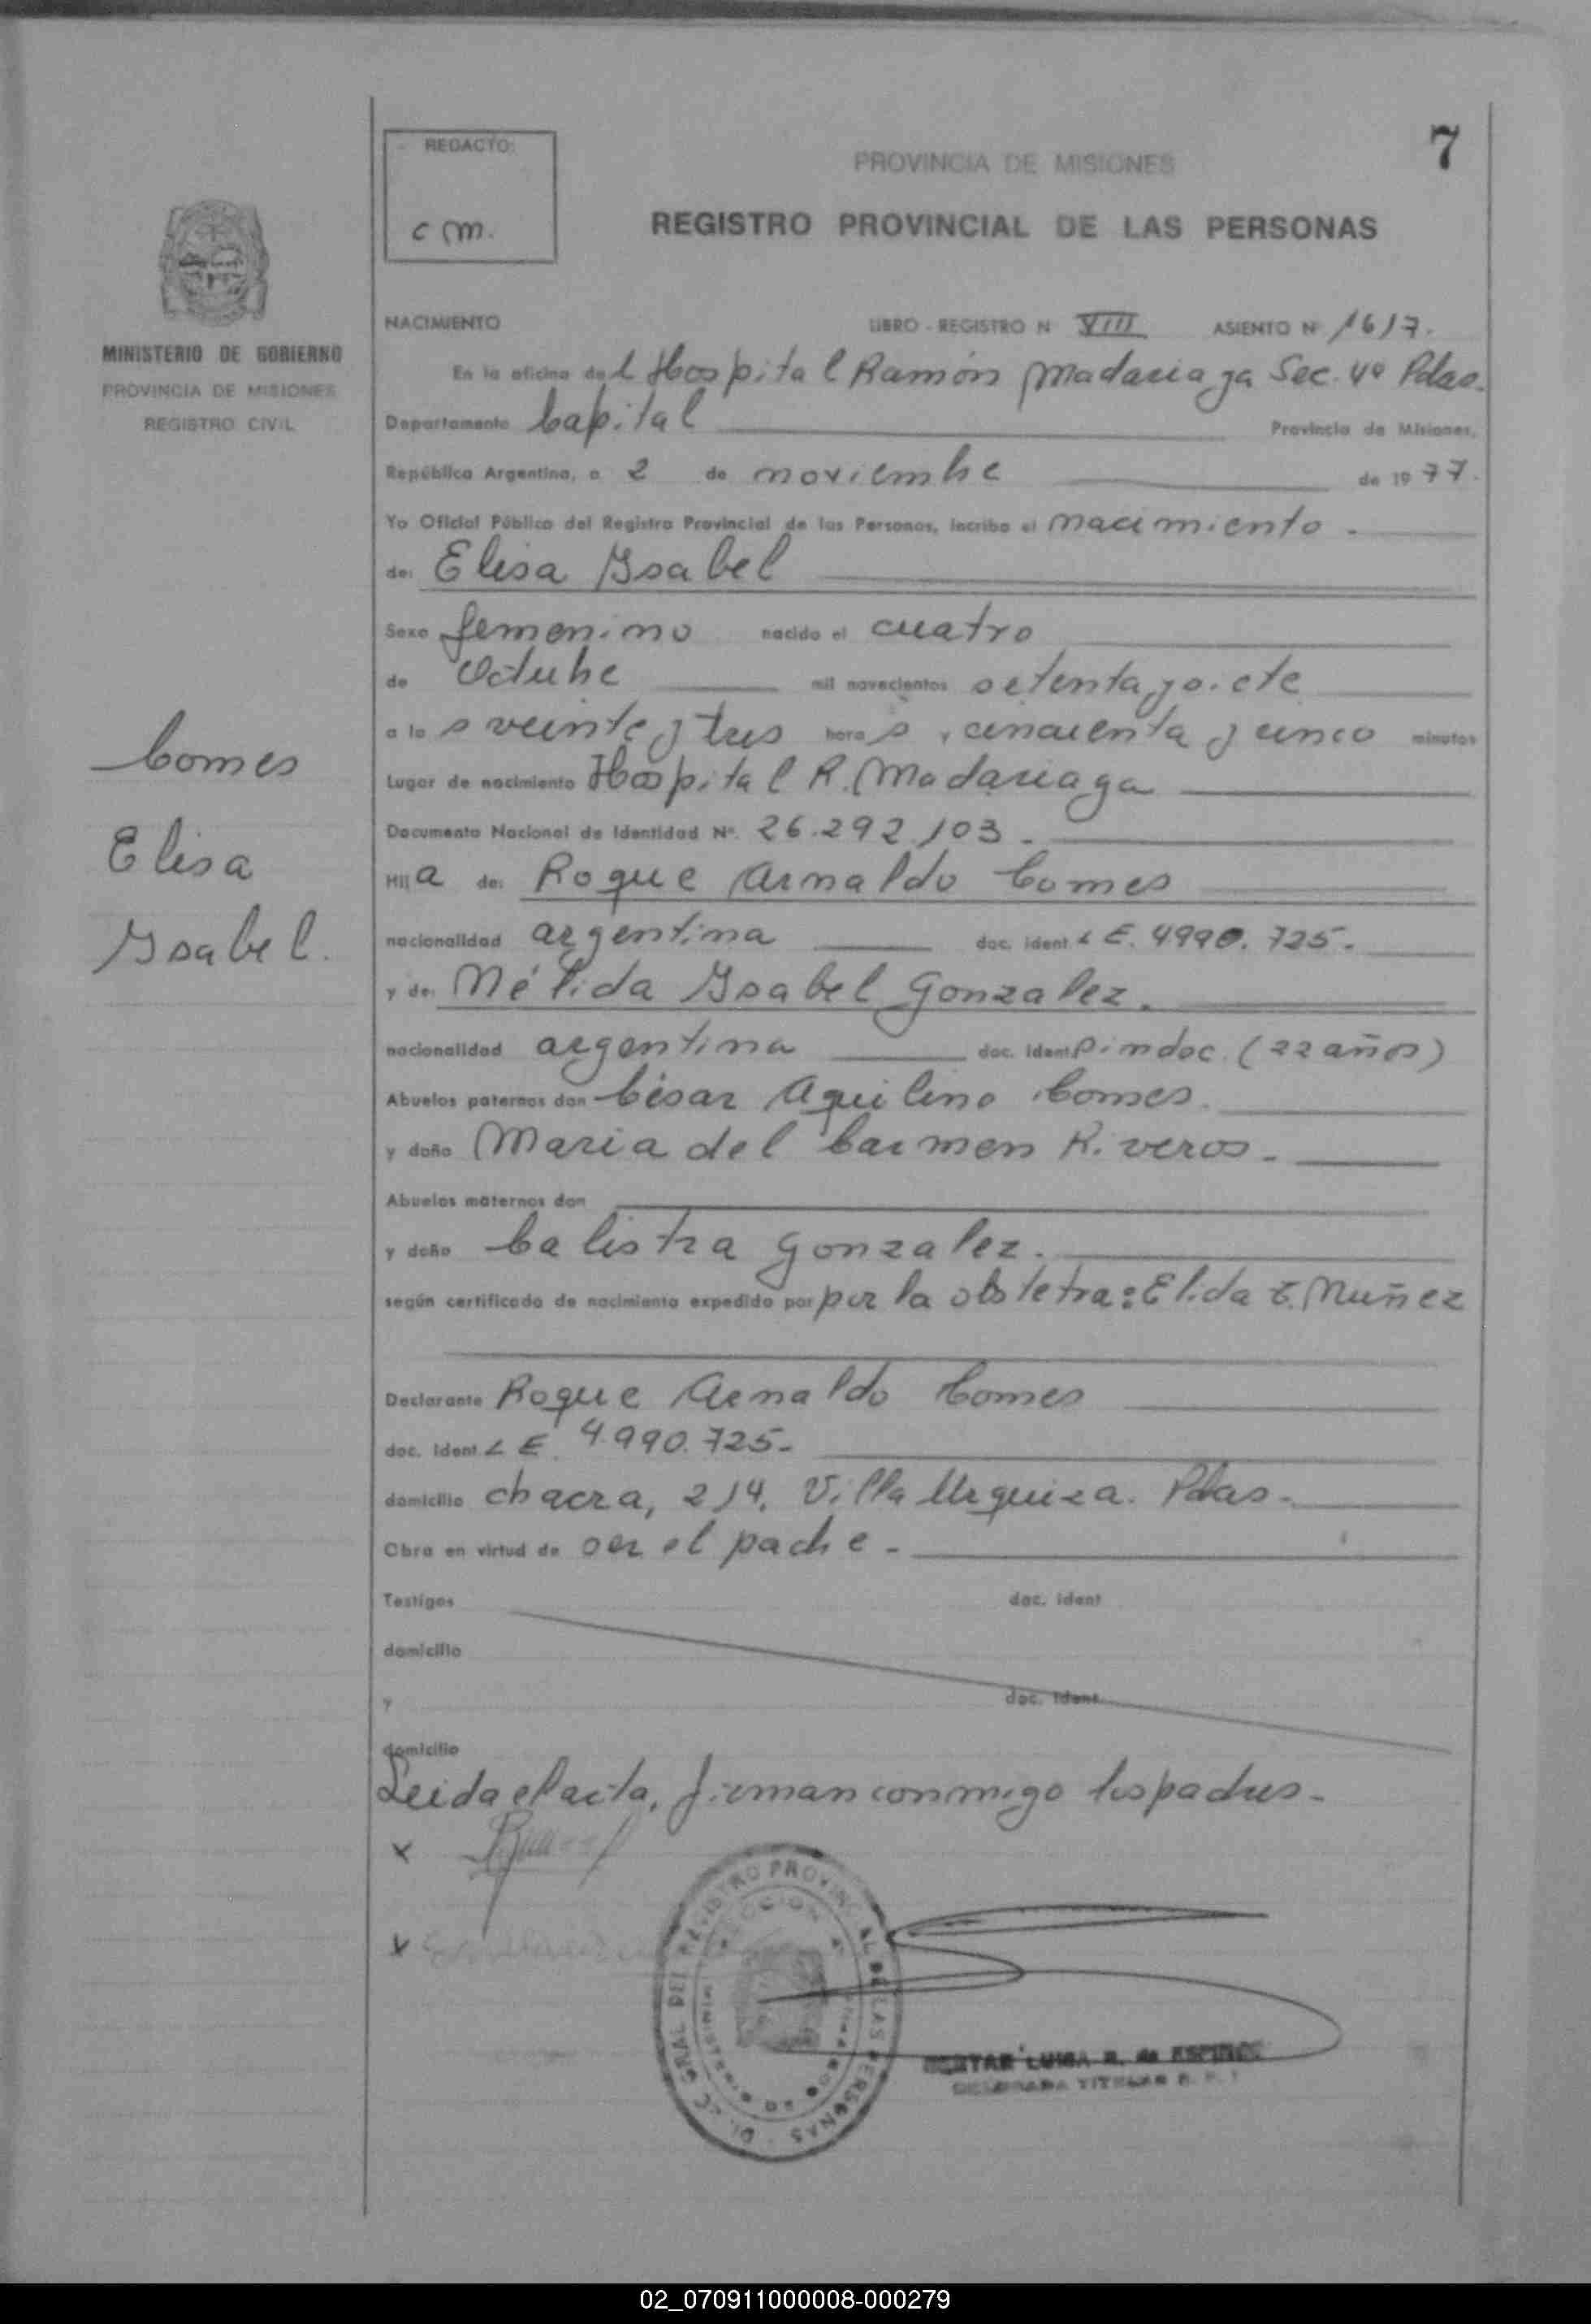 7
REDACTO:
c m.
PROVINCIA DE MISIONES
REGISTRO PROVINCIAL DE LAS PERSONAS
MINISTERIO DE GOBIERNO
PROVINCIA DE MISIONES
REGISTRO CIVIL
NACIMIENTO LIBRO - REGISTRO N VIII ASIENTO Nº 1617.
En la oficina del Hospital Ramón Madariaga Sec. 4º Pdas.
Departamento Capital Provincia de Misiones,
República Argentina, a 2 de noviembre de 1977.
Yo Oficial Público del Registro Provincial de las Personas, incribo el nacimiento.
de: Elisa Ysabel
Sexo femenino nacido el cuatro
de Octubre mil novecientos setenta y siete
a las veinte y tres horas y cincuenta y cinco minutos
Lugar de nacimiento Hospital R. Madariaga
Documento Nacional de Identidad Nº. 26.292.103.
Hija de: Roque Arnaldo Comes
nacionalidad argentina doc. ident L E. 4990.725.
y de: Nélida Ysabel Gonzalez.
nacionalidad argentina doc. ident sin doc. (22 años)
Abuelos paternos don César Aquilino Comes.
y doña Maria del Carmen Riveros.
Abuelos maternos don
y doña Calistra Gonzalez.
según certificado de nacimiento expedido por por la obstetra: Elida E. Nuñez
Declarante Roque Arnaldo Comes
doc. ident. L E. 4.990.725-
domicilio chacra, 214. Villa Urquiza. Pdas.
Obra en virtud de ser el padre.
Testigos doc. ident
domicilio
y doc. ident
domicilio
Leida el acta, firman conmigo los padres.
Comes
Elisa
Ysabel.
x
x
DEL REGISTRO PROVINCIAL DE LAS PERSONAS
LUISA R. de
TITULAR
02_070911000008-000279